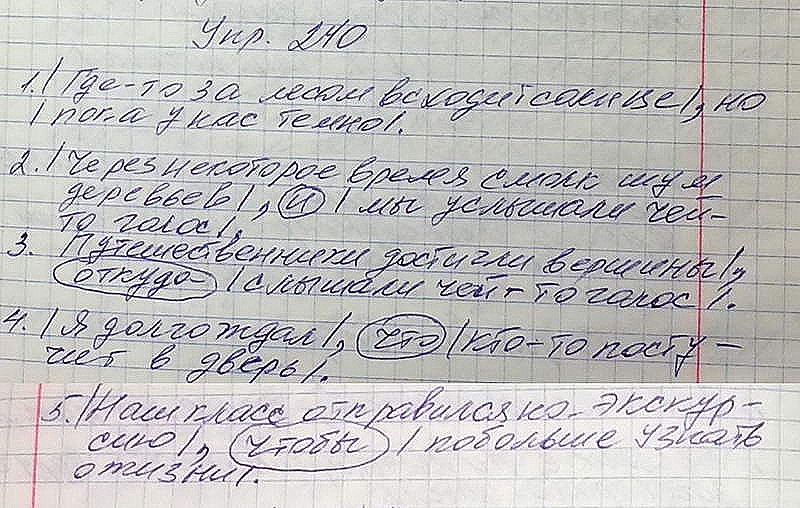 Упр. 240
1.| Где-то за лесом всходит солнце|, но
| пока у нас темно|.
2.| Через некоторое время смолк шум
деревьев|, и | мы услышали чей-
то голос|.
3. Путешественники достигли вершины|,
откуда | слышали чей-то голос|.
4. | Я долго ждал|, что | кто-то посту-
чит в дверь|.
5.| Наш класс отправился на экскур-
сию|, чтобы | побольше узнать
о жизни|.